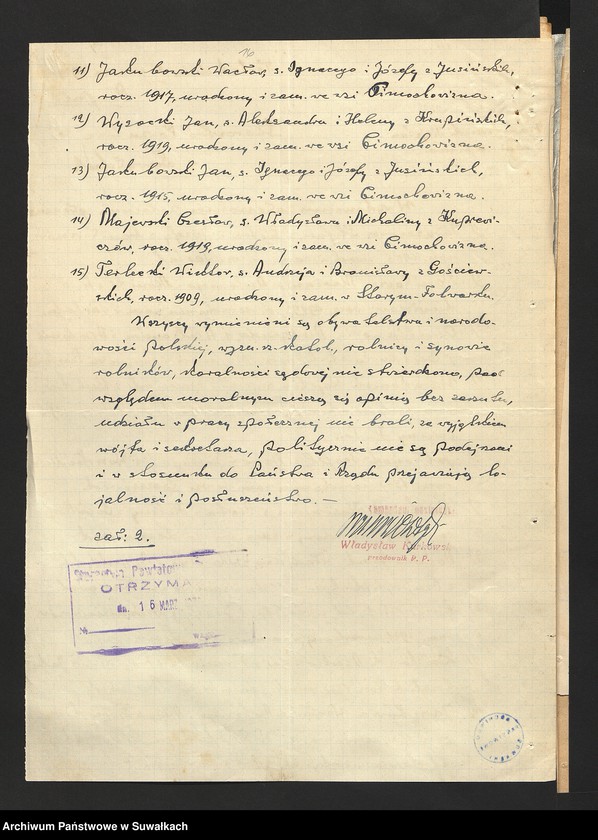 16
11) Jarkubowski Wacław, s. Ignacego i Józefy z Jusińskich,
rocz. 1917, urodzony i zam. we wsi Cimochowizna.
12) Wysocki Jan, s. Aleksandra i Heleny z Krupińskich,
rocz. 1919, urodzony i zam. we wsi Cimochowizna.
13) Jarkubowski Jan, s. Ignacego i Józefy z Jusińskich,
rocz. 1915, urodzony i zam. we wsi Cimochowizna.
14) Majewski Czesław, s. Władysława i Michaliny z Kuprewi-
czów, rocz. 1919, urodzony i zam. we wsi Cimochowizna.
15) Terlecki Wiktor, s. Andrzeja i Bronisławy z Gościew-
skich, rocz. 1909, urodzony i zam. w Starym-Folwarku.
Wszyscy wymienieni są obywatelstwa i narodo-
wości polskiej, wyzn. rz-katol., rolnicy i synowie
rolników, karalności sądowej nie stwierdzono, pod
względem moralnym cieszą się opinią bez zarzutu,
udziału w pracy społecznej nie brali, za wyjątkiem
wójta i sekretarza, politycznie nie są podejrzani
i w stosunku do Państwa i Rządu przejawiają lo-
jalność i posłuszeństwo. —
zał: 2.
Władysław
przodownik P. P.
Starostwo Powiatowe
OTRZYMA
dn. 15 MARZ
№
Archiwum Państwowe w Suwałkach